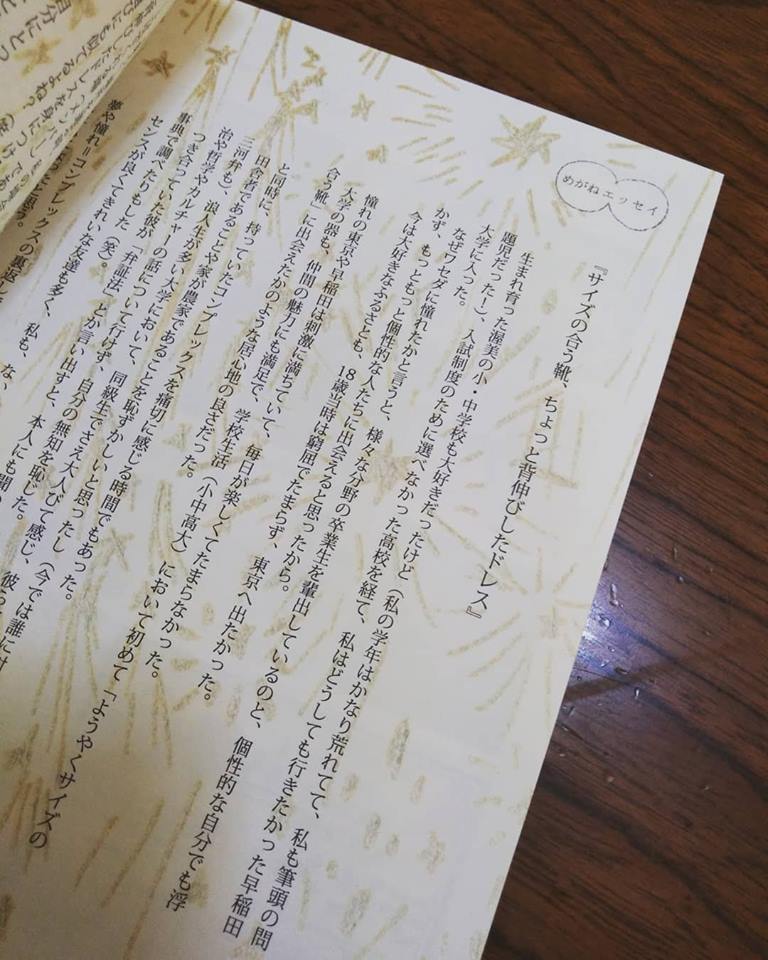 めがねエッセイ
『サイズの合う靴、ちょっと背伸びしたドレス』
生まれ育った渥美の小・中学校も大好きだったけど（私の学年はかなり荒れてて、私も筆頭の問
題児だったー！）、入試制度のために選べなかった高校を経て、私はどうしても行きたかった早稲田
大学に入った。
なぜワセダに憧れたかと言うと、様々な分野の卒業生を輩出しているのと、個性的な自分でも浮
かず、もっともっと個性的な人たちに出会えると思ったから。
今は大好きなふるさとも、18歳当時は窮屈でたまらず、東京へ出たかった。
憧れの東京や早稲田は刺激に満ちていて、毎日が楽しくてたまらなかった。
大学の器も、仲間の魅力にも満足で、学校生活（小中高大）において初めて「ようやくサイズの
合う靴」に出会えたかのような居心地の良さだった。
と同時に、持っていたコンプレックスを痛切に感じる時間でもあった。
田舎者であることや家が農家であることを恥ずかしいと思ったし（今では誰に
三河弁も）、浪人生が多い大学において、同級生でさえ大人びて感じ、彼ら
治や哲学やカルチャーの話について行けず、自分の無知を恥じた。
つき合っていた彼が「弁証法」とか言い出すと、本人にも聞
事典で調べたりもした（笑）。
センスが良くてきれいな友達も多く、私も、な
夢や憧れ＝コンプレックスの裏返し
と思う。